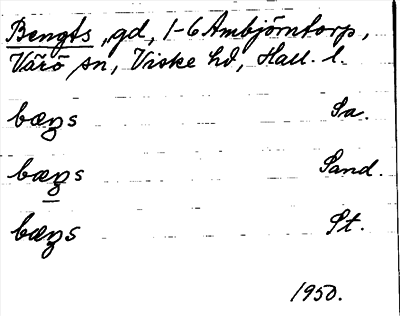 Bengts, gd, 1-6 Ambjörntorp,
Värö sn, Viske hd, Hall. l.
bæŋs Sa.
bæŋs Sand.
bæŋs St.
1950.